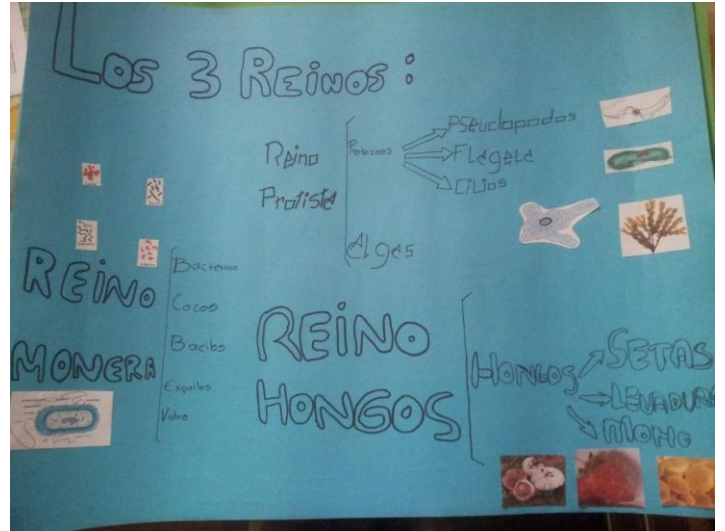 Los 3 REINOS:
Reino
Protista
Protozoos
Pseudopodos
Flagela
Cilios
Algas
REINO
MONERA
Bacterias
Cocos
Bacilos
Espirilos
Vibrio
REINO
HONGOS
HONGOS
SETAS
LEVADURS
MOHO